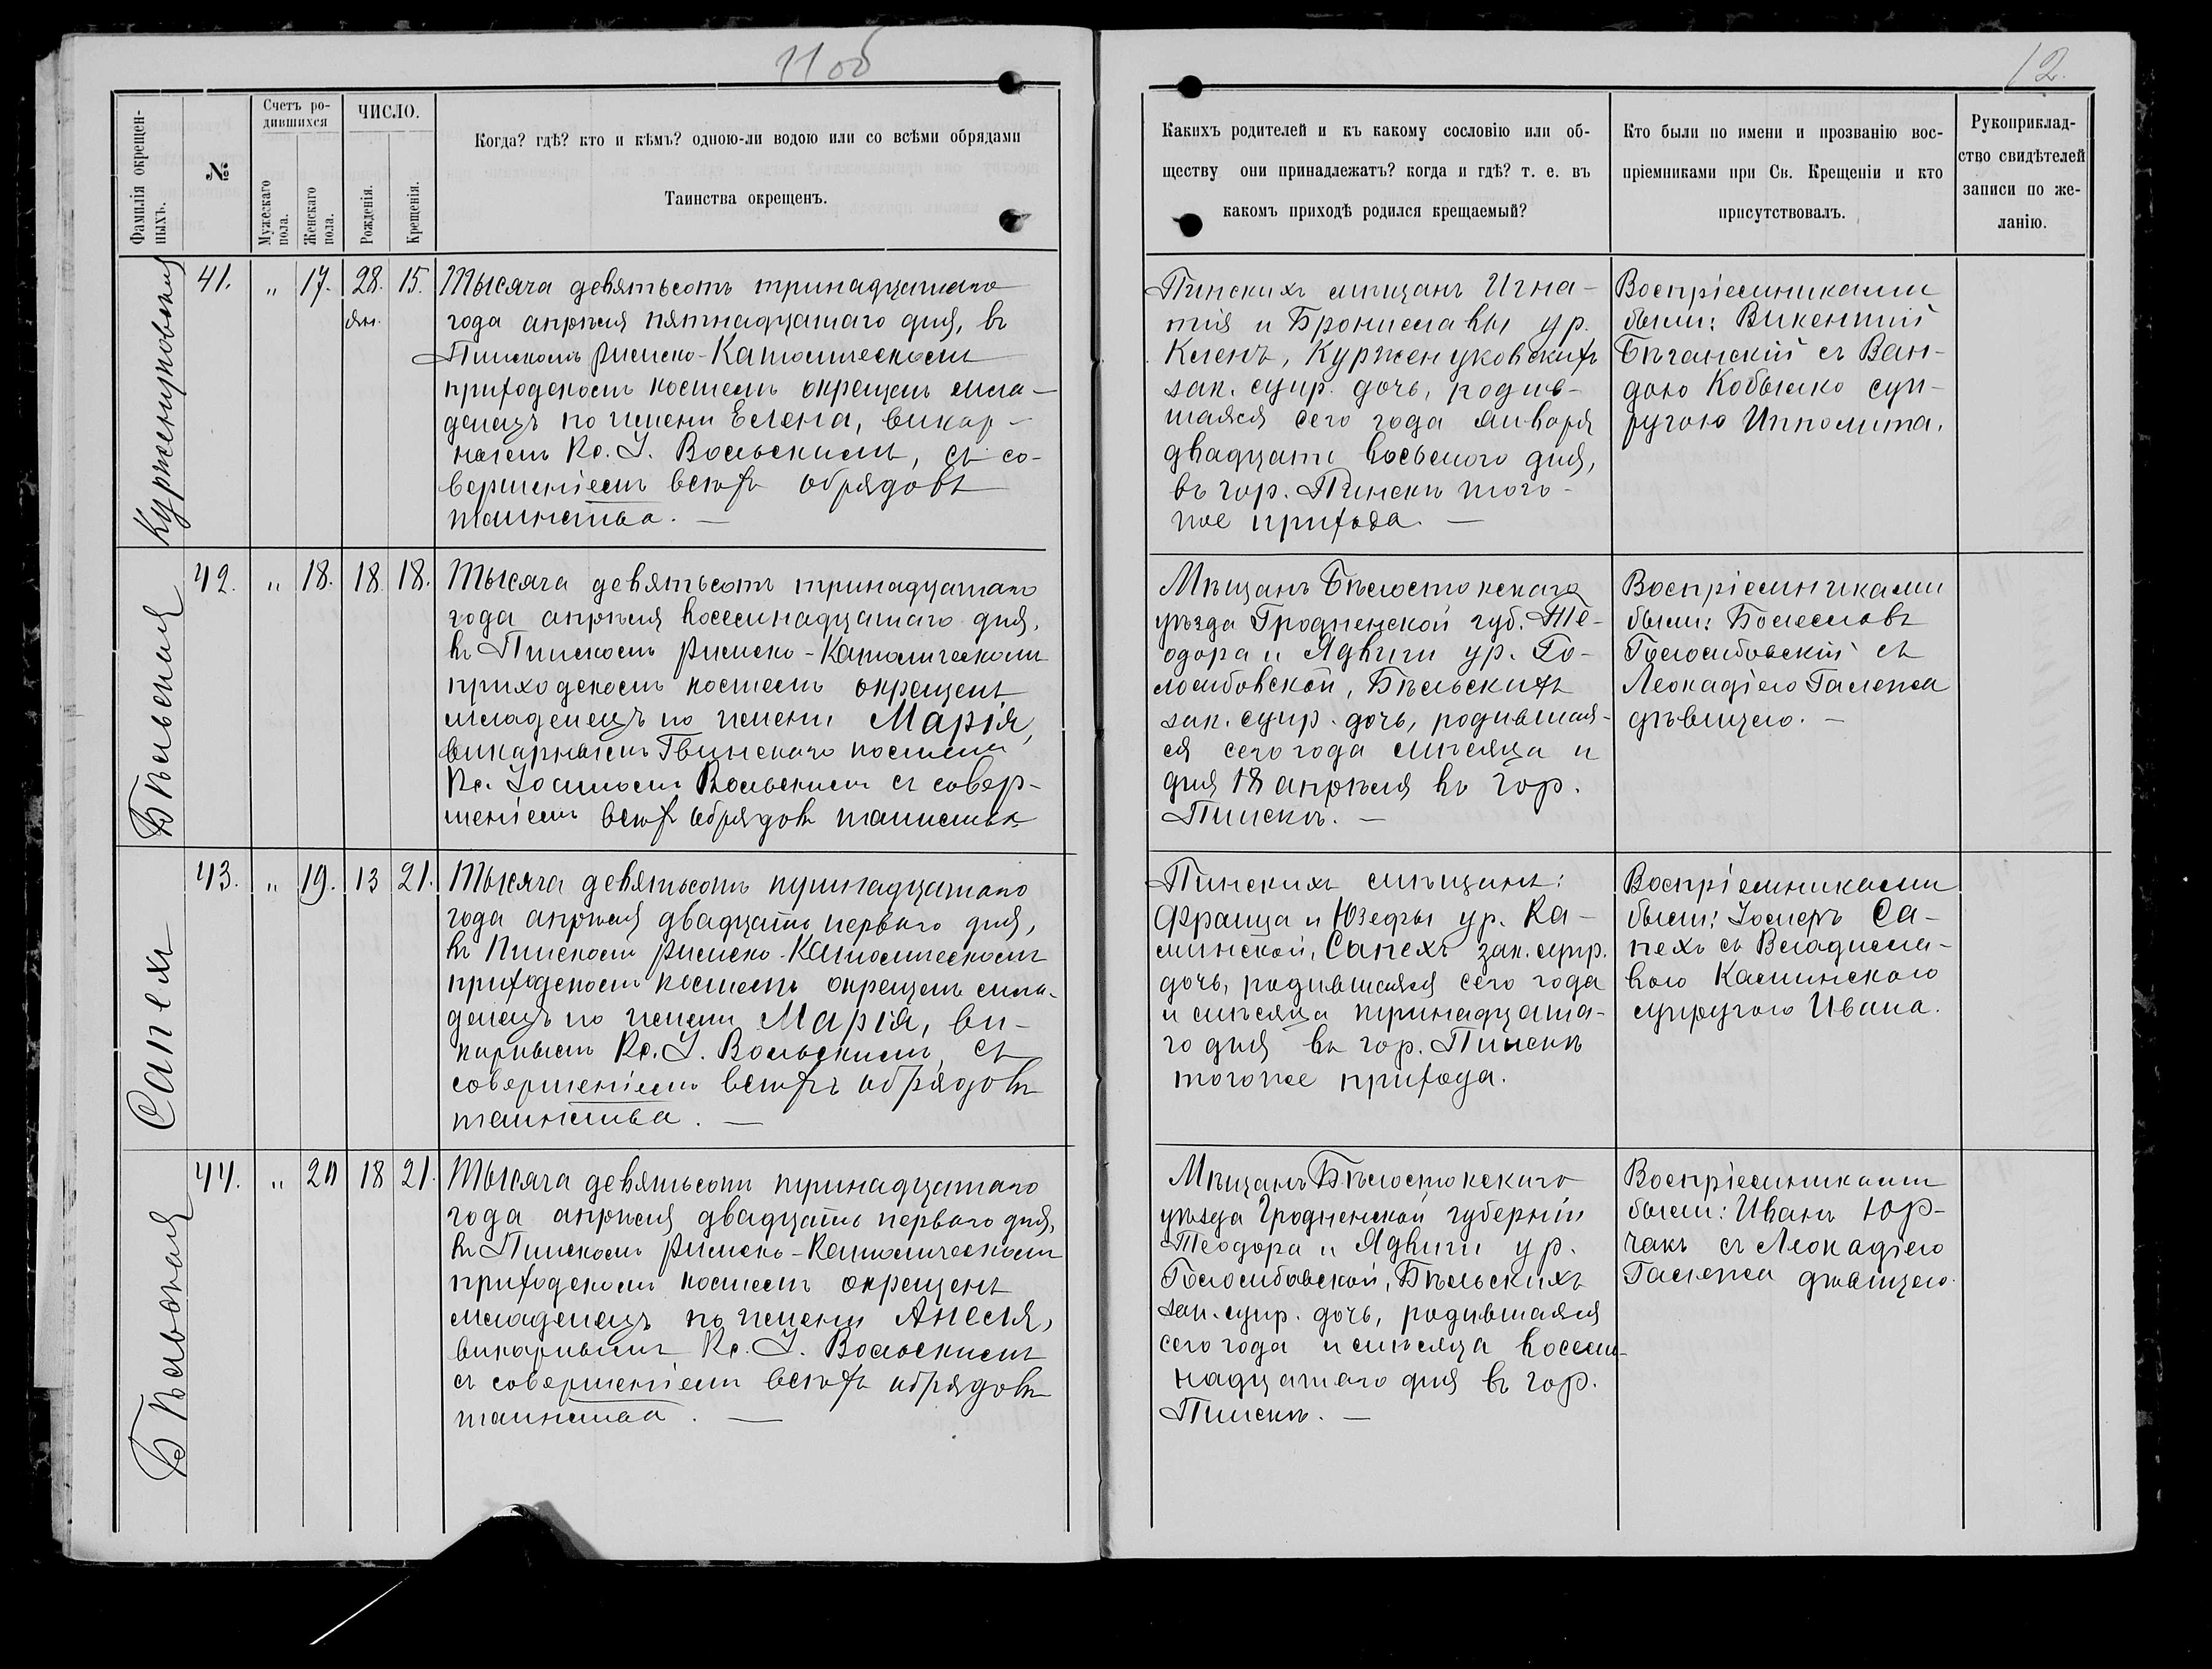 11 об
12.
Фамилія окрещен-
ныхъ.
№
Счетъ ро-
дившихся
Мужескаго
пола.
Женскаго
пола.
ЧИСЛО.
Рожденія.
Крещенія.
Когда? гдѣ? кто и кѣмъ? одною-ли водою или со всѣми обрядами
Таинства окрещенъ.
Какихъ родителей и къ какому сословію или об-
ществу они принадлежатъ? когда и гдѣ? т. е. въ
какомъ приходѣ родился крещаемый?
Кто были по имени и прозванію вос-
пріемниками при Св. Крещеніи и кто
присутствовалъ.
Рукоприклад-
ство свидѣтелей
записи по же-
ланію.
Курженцковская
41. „ 17. 28. 15.
янв.
Тысяча девятьсотъ тринадцатаго
года апрѣля пятнадцатаго дня, въ
Пинскомъ Римско-Католическомъ
приходскомъ костелѣ окрещенъ мла-
денецъ по имени Елена, викар-
нымъ Кс. І. Вольскимъ, съ со-
вершеніемъ всѣхъ обрядовъ
таинства. —
Пинскихъ мѣщанъ Игна-
тія и Брониславы ур.
Кленъ, Курженцковскихъ
зак. супр. дочь, родив-
шаяся сего года января
двадцать восьмого дня,
въ гор. Пинскѣ того-
же прихода. —
Воспріемниками
были: Викентій
Бѣганскій съ Ван-
дою Кобылко суп-
ругою Ипполита.
Бѣльская
42. „ 18. 18 18.
Тысяча девятьсотъ тринадцатаго
года апрѣля восемнадцатаго дня,
въ Пинскомъ Римско-Католическомъ
приходскомъ костелѣ окрещенъ
младенецъ по имени Марія,
викарнымъ костела
Кс. Вольскимъ съ совер-
шеніемъ всѣхъ обрядовъ таинства
Мѣщанъ Бѣлостокскаго
уѣзда Гродненской губ. Те-
одора и Ядвиги ур. Го-
ломбовской, Бѣльскихъ
зак. супр. дочь, родившая-
ся сего года мѣсяца и
дня 18 апрѣля въ гор.
Пинскѣ. —
Воспріемниками
были: Болеславъ
Голомбовскій съ
Леокадіею Галенза
дѣвицею. —
Сапехъ
43. „ 19. 13 21.
Тысяча девятьсотъ тринадцатаго
года апрѣля двадцать перваго дня,
въ Пинскомъ Римско-Католическомъ
приходскомъ костелѣ окрещенъ мла-
денецъ по имени Марія, ви-
карнымъ Кс. І. Вольскимъ, съ
совершеніемъ всѣхъ обрядовъ
таинства. —
Пинскихъ мѣщанъ:
Франца и Юзефы ур. Ка-
минской, Сапехъ зак. супр.
дочь, родившаяся сего года
и мѣсяца тринадцата-
го дня въ гор. Пинскѣ
тогоже прихода.
Воспріемниками
были: Іосифъ Са-
пехъ съ Владисла-
вою Каминскою
супругою Ивана.
Бѣльская
44. „ 20 18 21.
Тысяча девятьсотъ тринадцатаго
года апрѣля двадцать перваго дня,
въ Пинскомъ Римско-Католическомъ
приходскомъ костелѣ окрещенъ
младенецъ по имени Анеля,
викарнымъ Кс. І. Вольскимъ
съ совершеніемъ всѣхъ обрядовъ
таинства. —
Мѣщанъ Бѣлостокскаго
уѣзда Гродненской губерніи
Теодора и Ядвиги ур.
Голомбовской, Бѣльскихъ
зак. супр. дочь, родившаяся
сего года и мѣсяца восем-
надцатаго дня въ гор.
Пинскѣ. —
Воспріемниками
были: Иванъ Юр-
чакъ съ Леокадіею
Галенза дѣвицею.